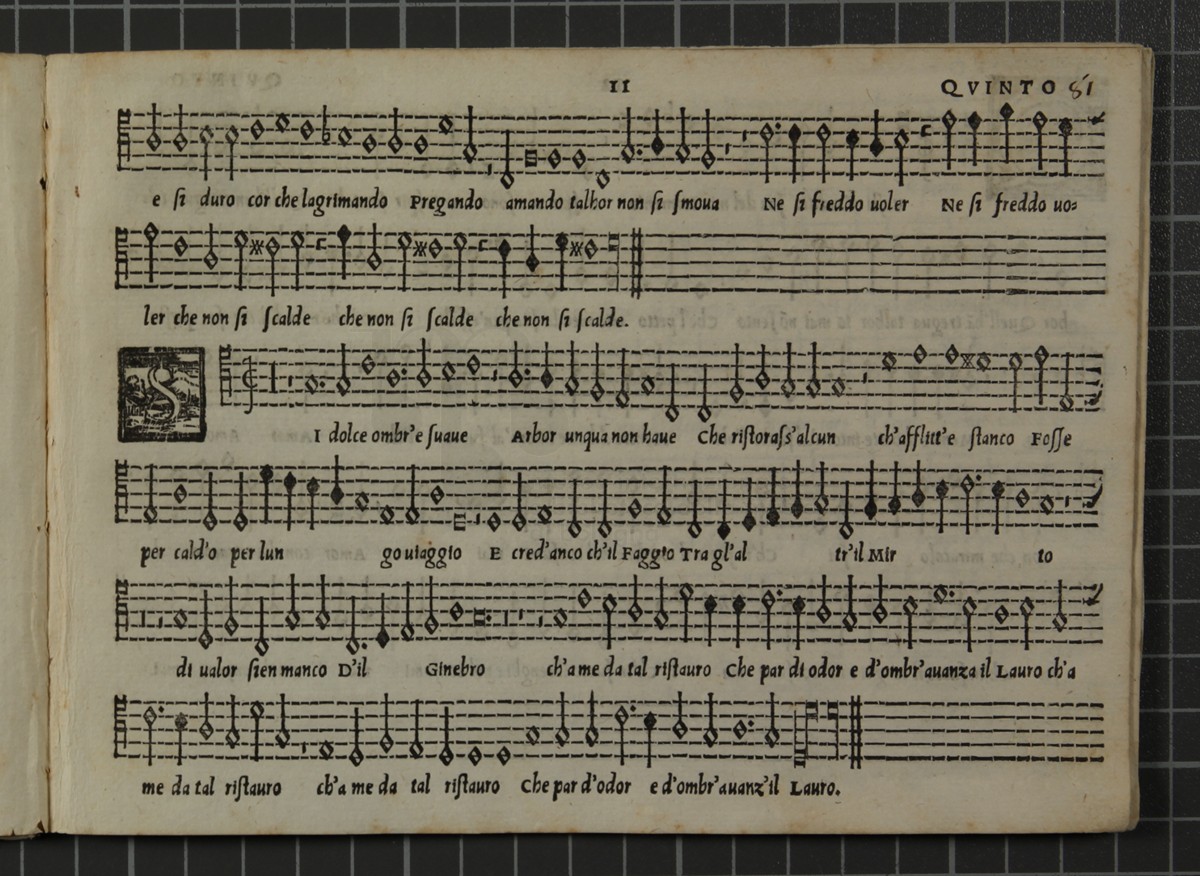 11 QVINTO 81
e ſi duro cor che lagrimando Pregando amando talhor non ſi ſmoua Ne ſi freddo uoler Ne ſi freddo uo=
ler che non ſi ſcalde che non ſi ſcalde che non ſi ſcalde.
S
I dolce ombr'e ſuaue Arbor unqua non haue Che riſtoraſs'alcun ch'afflitt'e ſtanco Foſſe
per cald'o per lun go uiaggio E cred'anco ch'il Faggio Tra gl'al tr'il Mir to
di ualor ſien manco D'il Ginebro ch'a me da tal riſtauro Che par di odor e d'ombr'auanza il Lauro ch'a
me da tal riſtauro ch'a me da tal riſtauro Che par d'odor e d'ombr'auanz'il Lauro.